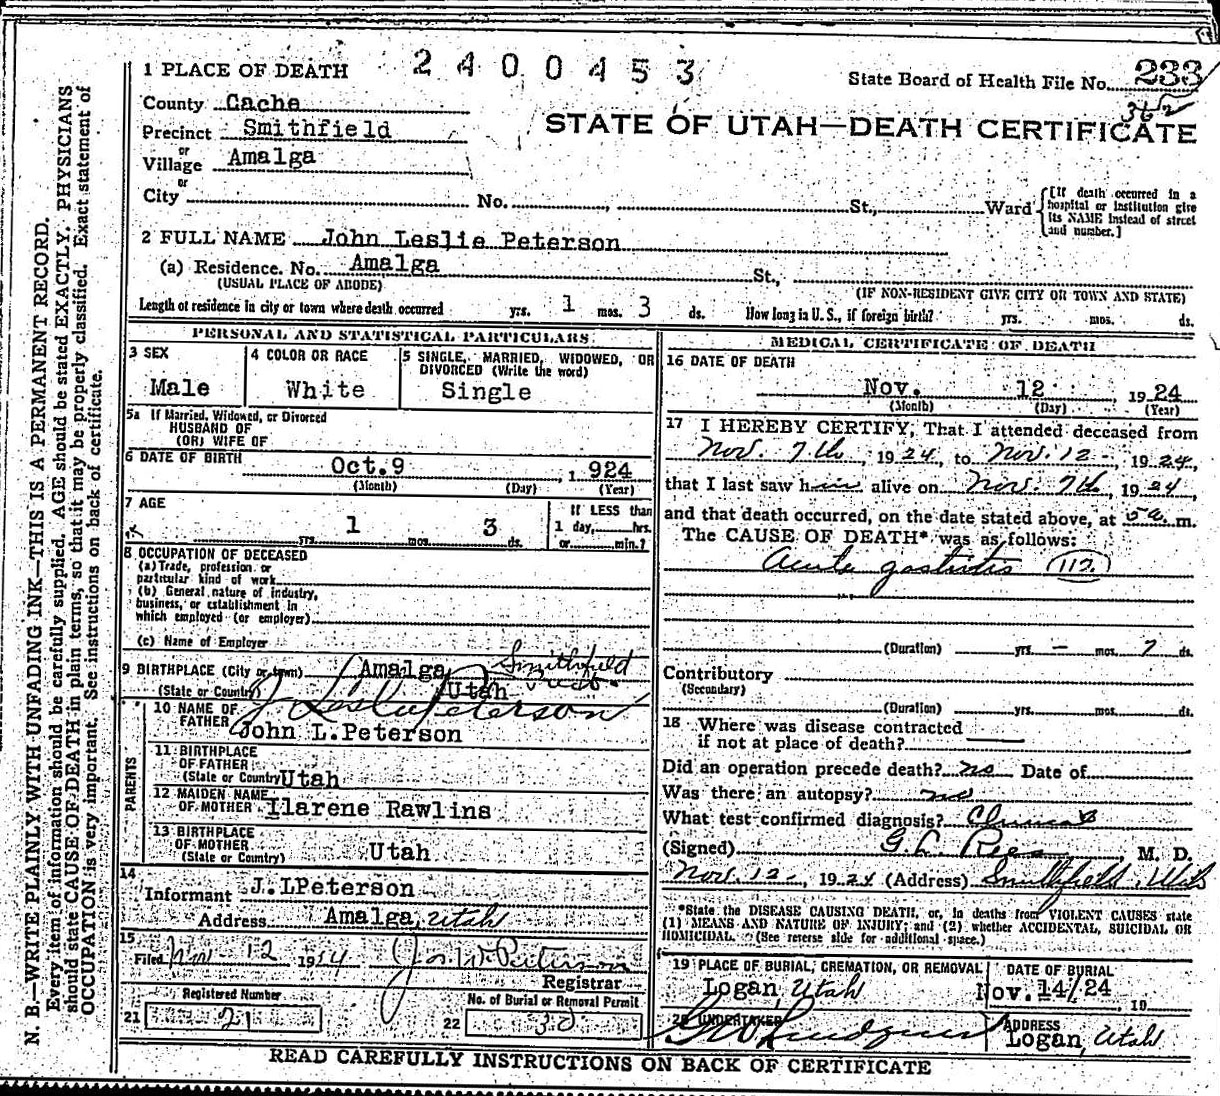 2400453
State Board of Health File No. 233
362
STATE OF UTAH—DEATH CERTIFICATE
N. B.—WRITE PLAINLY WITH UNFADING INK—THIS IS A PERMANENT RECORD.
Every item of information should be carefully supplied. AGE should be stated EXACTLY. PHYSICIANS
should state CAUSE OF DEATH in plain terms, so that it may be properly classified. Exact statement of
OCCUPATION is very important. See instructions on back of certificate.
1 PLACE OF DEATH
County Cache
Precinct Smithfield
or
Village Amalga
or
City No. St., Ward
[If death occurred in a
hospital or institution give
its NAME instead of street
and number.]
2 FULL NAME John Leslie Peterson
(a) Residence. No. Amalga St.,
(USUAL PLACE OF ABODE) (IF NON-RESIDENT GIVE CITY OR TOWN AND STATE)
Length of residence in city or town where death occurred yrs. 1 mos. 3 ds. How long in U. S., if foreign birth? yrs. mos. ds.
PERSONAL AND STATISTICAL PARTICULARS
3 SEX
Male
4 COLOR OR RACE
White
5 SINGLE, MARRIED, WIDOWED, OR
DIVORCED (Write the word)
Single
5a If Married, Widowed, or Divorced
HUSBAND OF
(OR) WIFE OF
6 DATE OF BIRTH Oct.9 , 1924
(Month) (Day) (Year)
7 AGE
yrs. 1 mos. 3 ds.
If LESS than
1 day, hrs.
or min.?
8 OCCUPATION OF DECEASED
(a) Trade, profession or
particular kind of work
(b) General nature of industry,
business, or establishment in
which employed (or employer)
(c) Name of Employer
9 BIRTHPLACE (City or town) Amalga Smithfield
(State or Country) Utah
J Leslie Peterson
PARENTS
10 NAME OF
FATHER John L.Peterson
11 BIRTHPLACE
OF FATHER
(State or Country) Utah
12 MAIDEN NAME
OF MOTHER Ilarene Rawlins
13 BIRTHPLACE
OF MOTHER
(State or Country) Utah
14
Informant J.LPeterson
Address Amalga Utah
15
Filed Nov - 12 1924 Jos. W. Peterson
Registrar
Registered Number
21 21
No. of Burial or Removal Permit
22 30
MEDICAL CERTIFICATE OF DEATH
16 DATE OF DEATH
Nov. 12 , 1924
(Month) (Day) (Year)
17 I HEREBY CERTIFY, That I attended deceased from
Nov. 7th, 1924, to Nov. 12 -, 1924,
that I last saw him alive on Nov. 7th, 1924,
and that death occurred, on the date stated above, at 5 a. m.
The CAUSE OF DEATH* was as follows:
Acute gastritis 112
(Duration) yrs. - mos. 7 ds.
Contributory
(Secondary)
(Duration) yrs. mos. ds.
18 Where was disease contracted
if not at place of death?
Did an operation precede death? no Date of
Was there an autopsy? no
What test confirmed diagnosis? Clinical
(Signed) G. L. Rees M. D.
Nov. 12 -, 1924 (Address) Smithfield, Utah
*State the DISEASE CAUSING DEATH, or, in deaths from VIOLENT CAUSES state
(1) MEANS AND NATURE OF INJURY; and (2) whether ACCIDENTAL, SUICIDAL OR
HOMICIDAL. (See reverse side for additional space.)
19 PLACE OF BURIAL, CREMATION, OR REMOVAL
Logan Utah
DATE OF BURIAL
Nov. 14/24 , 19
20 UNDERTAKER
ADDRESS
Logan, Utah
READ CAREFULLY INSTRUCTIONS ON BACK OF CERTIFICATE